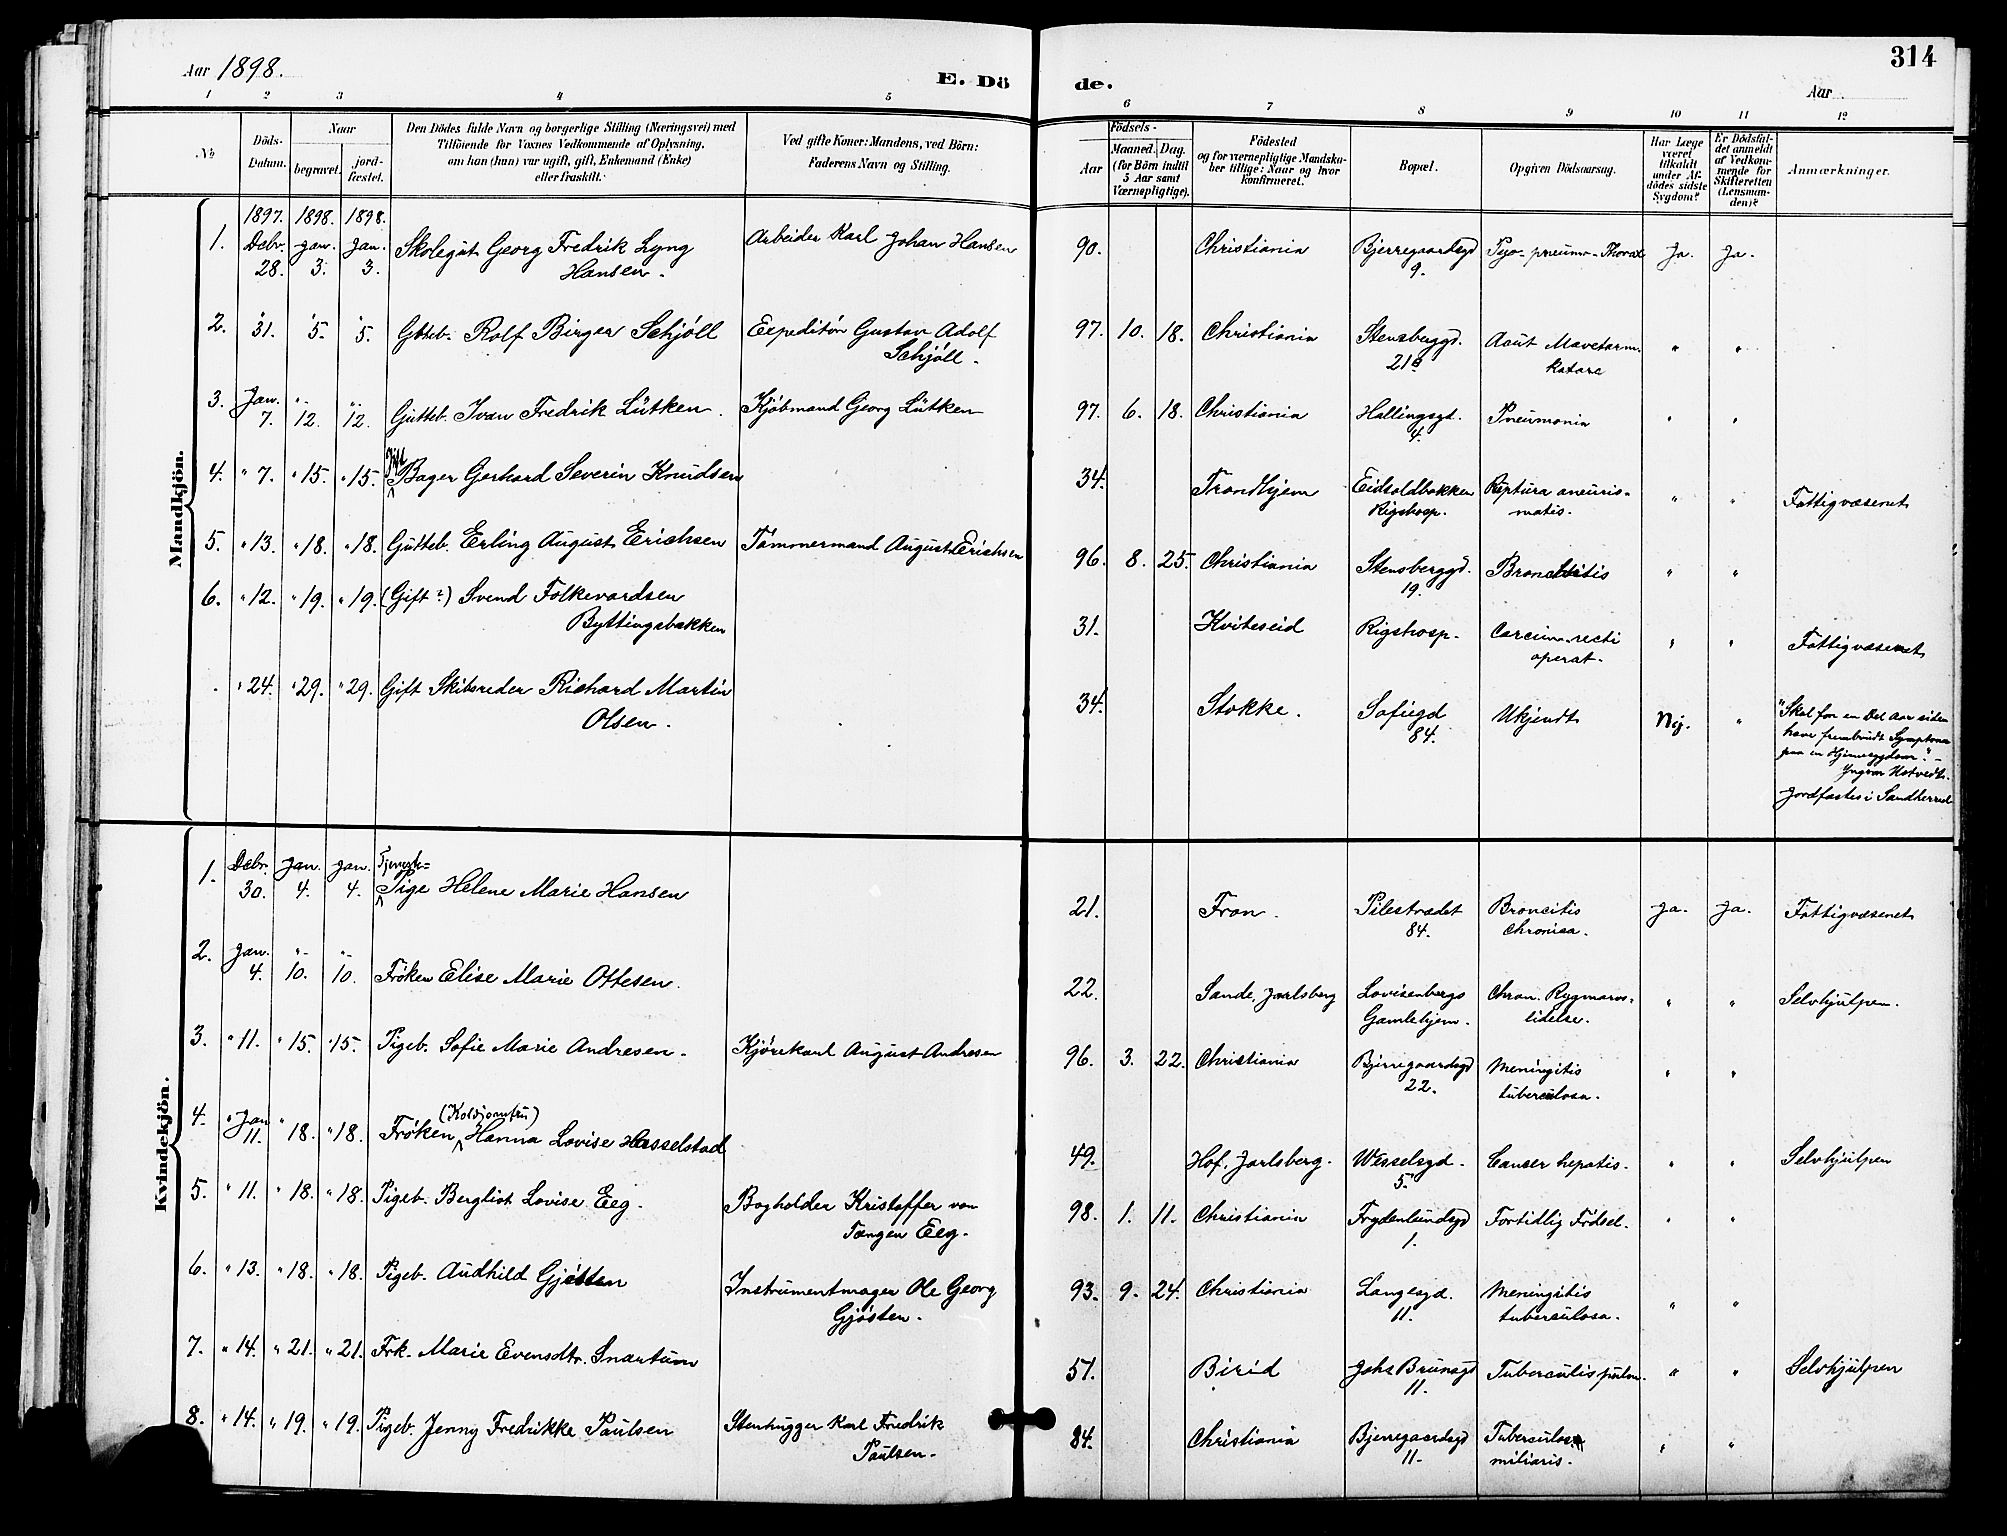 Aar 1898.
E. Dö de.
314
Aar
1 2 3 4 5 6 7 8 9 10 11 12
No
Döds-Datum.
Naar
begravet.
jord-fæstet.
Den Dödes fulde Navn og borgerlige Stilling (Næringsvei) med
Tilföiende for Voxnes Vedkommende af Oplysning,
om han (hun) var ugift, gift, Enkemand (Enke)
eller fraskilt.
Ved gifte Koner: Mandens, ved Börn:
Faderens Navn og Stilling.
Födsels-
Aar
Maaned. Dag.
(for Börn indtil
5 Aar samt
Værnepligtige).
Födested
og for værnepligtige Mandska-
ber tillige: Naar og hvor
konfirmeret.
Bopæl.
Opgiven Dödsaarsag.
Har Læge
været
tilkaldt
under Af-
dödes sidste
Sygdom?
Er Dödsfal-
det anmeldt
af Vedkom-
mende for
Skifteretten
(Lensman-
den)?
Anmærkninger.
Mandkjön.
1897. 1898. 1898.
1. Debr. Jan. Jan. Skolegut Georg Fredrik Lyng Arbeider Karl Johan Hansen 90. Christiania Bjerregaardsgd Pyo-pneumo-Thorax Ja. Ja.
28. 3. 3. Hansen. 9.
2. " 31. " 5. " 5. Gutteb. Rolf Birger Schjöll Expeditör Gustav Adolf 97. 10. 18. Christiania Stensberggd. Acut Mavetarm- " "
Schjöll. 21 katare
3. Jan. " "
7. 12. 12. Gutteb. Ivan Fredrik Lütken. Kjöbmand Georg Lütken 97. 6. 18. Christiania Hallingsgd. Pneumonia " "
4.
Gift
4. " 7. " 15. " 15. Bager Gerhard Severin Knudsen 34. Trondhjem Eidsvoldbakken Ruptura aneuris- " " Fattigvæsenet
Rigshosp. matis.
5. " 13. " 18. " 18. Gutteb. Erling August Erichsen Tömmermand August Erichsen 96. 8. 25. Christiania Stensberggd. Bronchitis " "
19.
6. " 12. " 19. " 19. (Gift?) Svend Folkevardsen 31. Kviteseid Rigshosp. Carcinom recti " " Fattigvæsenet
Byttingsbakken operat.
. " 24. " 29. " 29. Gift Skibsreder Richard Martin 34. Stokke. Sofiegd Ukjendt Nej. " "Skal for en Del Aar siden
Olsen. 84. have frembudt Symptomer
paa en Hjernesygdom". -
Yngvar Ustvedt.
Jordfæstes i Sandherred
Kvindekjön.
Tjeneste-
1. Debr. Jan. Jan.
30. 4. 4. Pige Helene Marie Hansen 21. Fron. Pilestrædet Broncitis Ja. Ja. Fattigvæsenet
84. chronica.
2. Jan. " "
4. 10. 10. Fröken Elise Marie Ottesen. 22. Sande, Jarlsberg Lovisenbergs Chron. Rygmarvs- " " Selvhjulpen.
Gamlehjem. lidelse.
3. " 11. " 15. " 15. Pigeb. Sofie Marie Andresen. Kjörekarl August Andresen 96. 3. 22. Christiania Bjerregaardsgd Meningitis " "
22. tuberculosa.
(Koldjomfru)
4. " Jan 11. " 18. " 18. Fröken Hanna Lovise Hasselstad 49. Hof, Jarlsberg. Wesselsgd. Cancer hepatis. " " Selvhjulpen
5.
5. " 11. " 18. " 18. Pigeb. Bergliot Lovise Eeg. Bogholder Kristoffer von 98. 1. 11. Christiania Frydenlundsgd Fortidlig Födsel. " "
Tangen Eeg. 1.
6. " 13. " 18. " 18. Pigeb. Audhild Gjösten Instrumentmager Ole Georg 93. 9. 24. Christiania Langesgd. Meningitis " "
Gjösten. 11. tuberculosa.
7. " 14. " 21. " 21. Frk. Marie Evensdtr. Snartum 51. Birid Johs Brunsgd Tuberculis pulm. " " Selvhjulpen
11.
8. " 14. " 19. " 19. Pigeb. Jenny Fredrikke Paulsen Stenhugger Karl Fredrik 84. Christiania Bjerregaardsgd Tuberculosa " "
Paulsen. 11. miliaris.